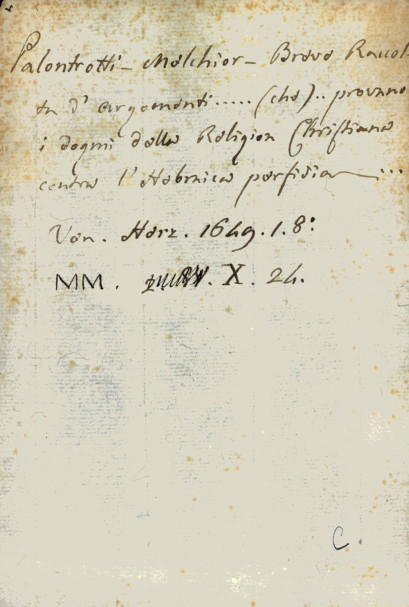 Palontrotti - Melchior - Breve Raccol-
ta d' argomenti..... (che).. provano
i dogmi della Religion Christiana
contra l' Hebraica perfidia ...
Ven. Herz. 1649. 1. 8:
MM. . X. 24.
C.